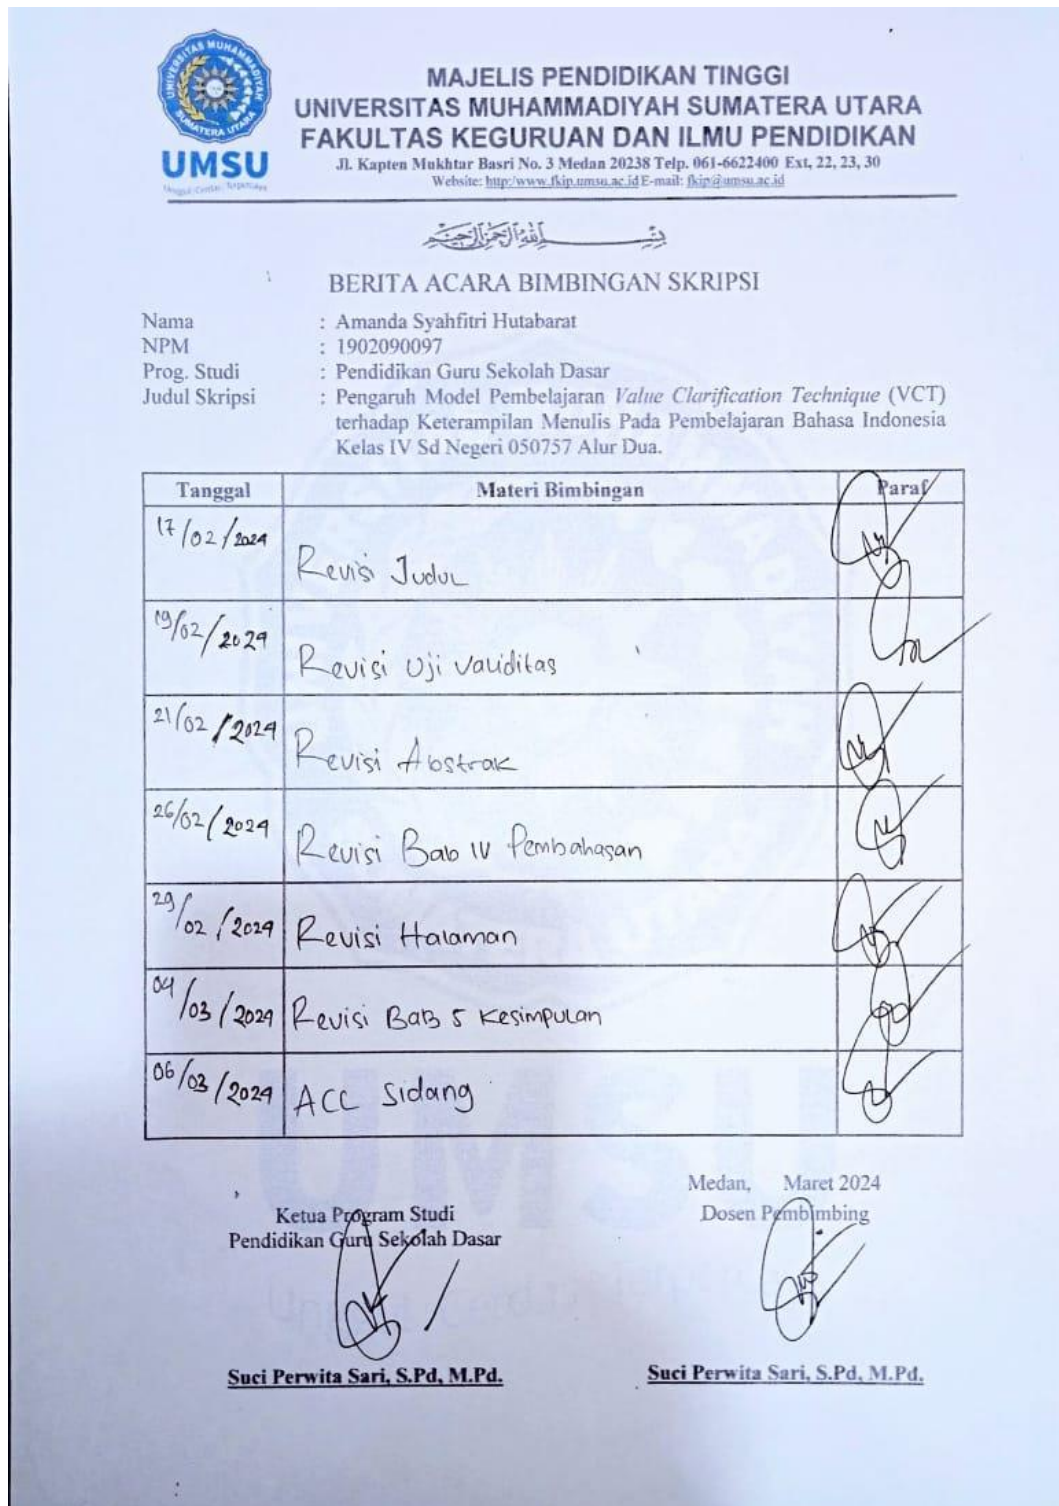 UNIVERSITAS MUHAMMADIYAH
SUMATERA UTARA
UMSU
Unggul | Cerdas | Terpercaya
MAJELIS PENDIDIKAN TINGGI
UNIVERSITAS MUHAMMADIYAH SUMATERA UTARA
FAKULTAS KEGURUAN DAN ILMU PENDIDIKAN
Jl. Kapten Mukhtar Basri No. 3 Medan 20238 Telp. 061-6622400 Ext, 22, 23, 30
Website: http:/www.fkip.umsu.ac.id E-mail: fkip@umsu.ac.id
بِسْمِ اللَّهِ الرَّحْمَنِ الرَّحِيمِ
BERITA ACARA BIMBINGAN SKRIPSI
Nama : Amanda Syahfitri Hutabarat
NPM : 1902090097
Prog. Studi : Pendidikan Guru Sekolah Dasar
Judul Skripsi : Pengaruh Model Pembelajaran Value Clarification Technique (VCT)
terhadap Keterampilan Menulis Pada Pembelajaran Bahasa Indonesia
Kelas IV Sd Negeri 050757 Alur Dua.
Tanggal Materi Bimbingan Paraf
17/02/2024 Revisi Judul
19/02/2024 Revisi Uji Validitas
21/02/2024 Revisi Abstrak
26/02/2024 Revisi Bab IV Pembahasan
29/02/2024 Revisi Halaman
04/03/2024 Revisi Bab 5 Kesimpulan
06/03/2024 ACC Sidang
Medan, Maret 2024
Ketua Program Studi Dosen Pembimbing
Pendidikan Guru Sekolah Dasar
Suci Perwita Sari, S.Pd, M.Pd. Suci Perwita Sari, S.Pd, M.Pd.